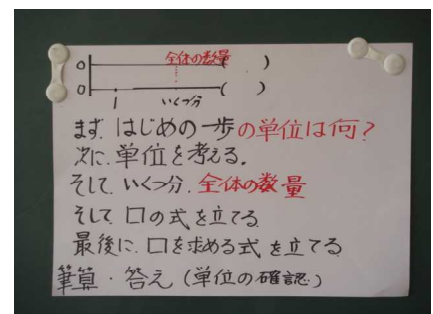 全体の数量
0 ( )
0 ( )
1 いくつ分
まず はじめの一歩の単位は何?
次に.単位を考える.
そして.いくつ分.全体の数量
そして 口の式を立てる
最後に.口を求める式を立てる
筆算・答え(単位の確認)